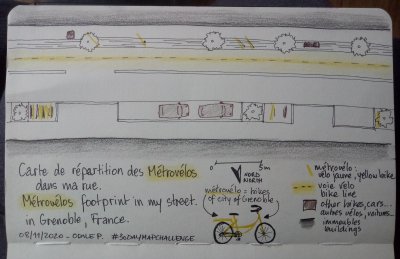 Carte de répartition des Métrovélos
dans ma rue.
Métrovélos footprint in my street
in Grenoble, France.
08/11/2020 - ODILE P. #30DAYMAPCHALLENGE
0 5m
NORD
NORTH
métrovélo = bikes
of city of Grenoble
métrovélo :
vélo jaune, yellow bike
voie vélo
bike line
other bikes, cars...
autres vélos, voitures...
immeubles
buildings